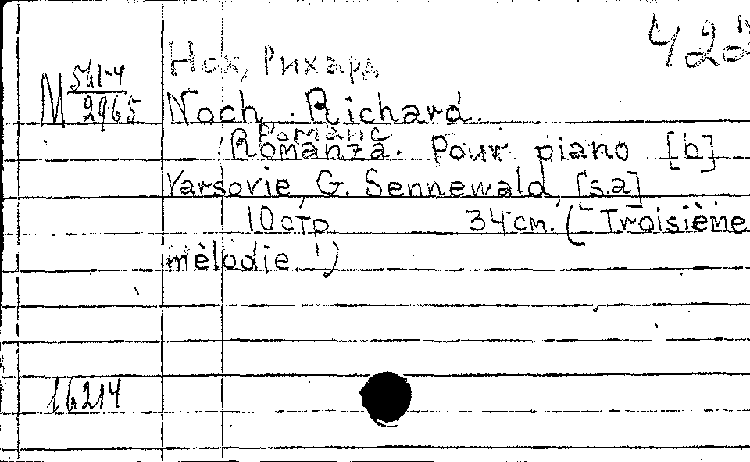 422
Нох, Рихард
М 511-4
2965
Noch, Richard.
Романс
Romanza. Pour piano [b]
Varsovie, G. Sennewald, [s.a]
10 стр. 34 cm. (Troisième
mèlodie)
16214